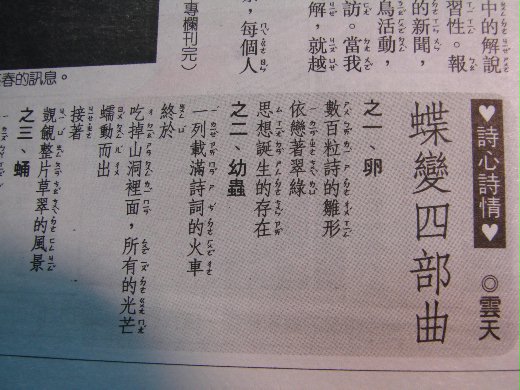 中的解說
習性。報
的新聞,
鳥活動,
訪。當我
解,就越
,每個人
專欄刊完)
春的訊息。
♥詩心詩情♥
蝶變四部曲
◎雲天
之一、卵
數百粒詩的雛形
依戀著翠綠
思想誕生的存在
之二、幼蟲
一列載滿詩詞的火車
終於
吃掉山洞裡面,所有的光芒
蠕動而出
接著
之三、蛹
覬覦整片草翠的風景